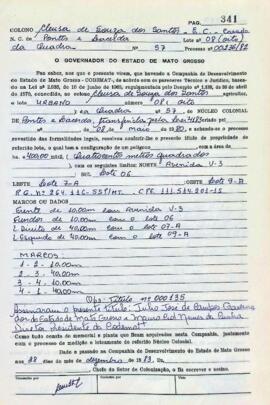 PAG. 341
COLONO Cleusa de Souza dos Santos - E.C.
N.C. de Pontes e Lacerda Lote nº 08 (oito)
da Quadra Nº 57 Processo nº 00236/82
O GOVERNADOR DO ESTADO DE MATO GROSSO
Faz saber, aos que a presente virem, que havendo a Companhia de Desenvolvimento
do Estado de Mato Grosso - CODEMAT-, de acordo com os pareceres Técnico e Jurídico, baseados
na Lei nº 2.083, de 10 de junho de 1963, regulamentada pelo Decreto nº 1.138, de de abril
de 1970, concedido, ao senhor Cleusa de Souza dos Santos, agricultor, o
lote URBANO nº 08 (oito)
da Quadra nº 57, DO NÚCLEO COLONIAL
DE Pontes e Lacerda, transferida pela Lei 4.183, em virtude do processo
de 08 de maio de 1980, e achando-se o processo
revestido das formalidades legais, resolveu conferir-lhe o presente título de propriedade do
referido lote, o qual tem a configuração de um polígono com a área de
400,00 mts (Quatrocentos metros quadrados)
com os seguintes limites: NORTE Avenida V-3
SUL Lote 06
LESTE 7-A OESTE Lote 9-A
R.G. nº 264.116-SSP/MT. CPF 111.514.201-15
MARCOS OU DADOS
Frente de 10,00m com Avenida V-3
Fundos de 10,00m com o lote 06
L. Direito de 40,00m com o lote 07-A
L. Esquerdo de 40,00m com o lote 09-A
MARCOS
1 - 2 - 10,00m
2 - 3 - 40,00m
3 - 4 - 10,00m
4 - 1 - 40,00m
Obs: Título nº 000135
Assinaram o presente título: Julio José de Campos Governador
do Estado de Mato Grosso e Mauro Cid Nunes da Cunha
Diretor Presidente da Codemat
Como tudo consta do memorial e planta que ficam arquivados nesta Companhia, juntamente
com o processo de medição e loteamento do referido Núcleo Colonial.
Dada e passada na Companhia de Desenvolvimento do Estado de Mato Grosso
aos 28 dias do mês de dezembro de 1983. Eu,
Chefe do Setor de Colonização, a fiz escrever e assino.